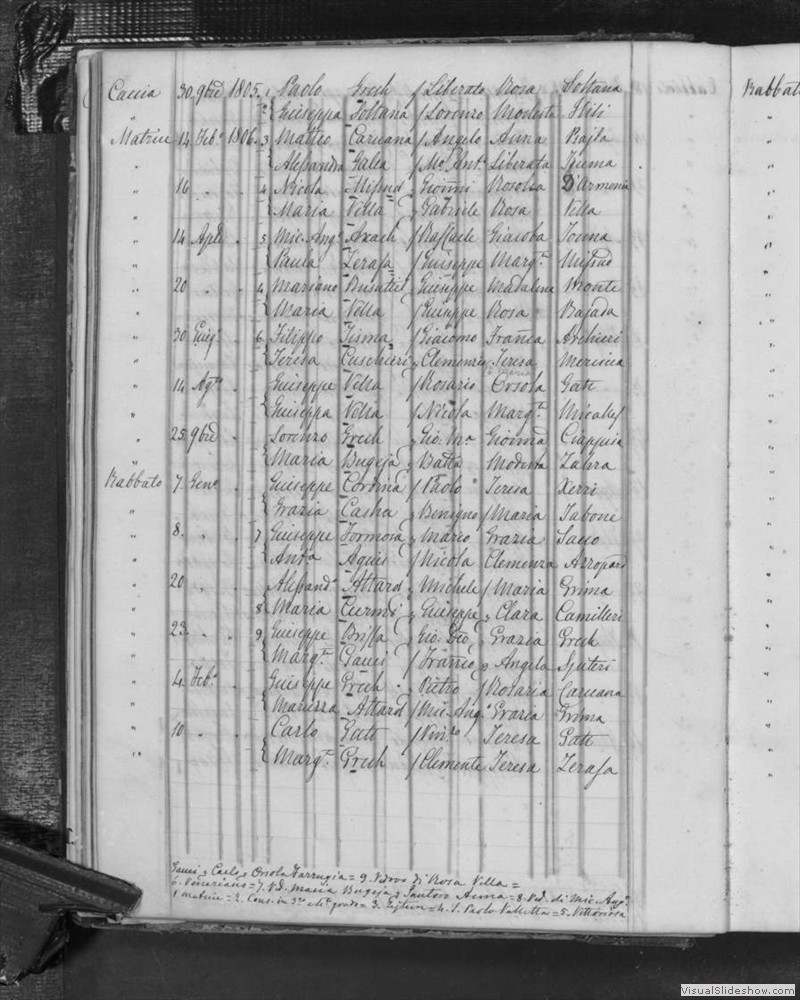 Caccia 30. 9bre 1805. 1 Paolo Grech / Liberato Rosa Soltana
" 2 Giuseppa Soltana / Lorenzo Modesta
Matrice 14 Feb.o 1806. 3 Matteo Caruana / Angelo Anna Bajla
" Alessandra Galea / Liberata
" 16 " " 4 Nicola Mifsud " Giovni Rosolia D'Armenia
" Maria Vella " Gabriele Rosa Vella
" 14 Aple " 5 Mic. Ang.o Axach / Raffaele Giacoba
" Paula Zerafa / Giuseppe Marg.ta Mifsud
" 20 " " 4 Mariano Busuttil " Giuseppe Madalena Monte
" Maria Vella / Giuseppe Rosa Bajada
" 30 Giug.o " 6 Filippo / Giacomo Fran.ca
" Teresa Cuschieri " Clemenzo Teresa Mericca
" 14 Ag.to " Giuseppe Vella / Rosario Orsola Gatt
" Giuseppa Vella / Nicola Marg.ta Micallef
" 25 9bre " Lorenzo Grech " Gio. M.a Gioanna Ciappaia
" Maria Bugeja " Batta Modesta Zahra
Rabbato 7 Gen.o " Giuseppe / Paolo Teresa Xerri
" Grazia Casha " Benigno / Maria Tabone
" 8. " " 7 Giuseppe Formosa " Mario Grazia
" Ant.a Agius / Nicola Clemenza
" 20 " " Alessand.o Attard " Michele / Maria Grima
" 8 Maria Curmi " Giuseppe " Clara Camilleri
" 23 " " 9 Giuseppe Briffa " Gio. Grazia Grech
" Marg.ta Gauci / Angela Spiteri
" 4. Feb.o " Giuseppe Grech " Pietro / Rosaria Caruana
" Maruzza Attard / Mic. Ang.o Grazia Grima
" 10 " " Carlo Gatt / Vinc.zo Teresa Gatt
" Marg.ta Grech / Clemente Teresa Zerafa
Gauci, Carlo, Orsola Farrugia = 9. Vedovo di Rosa Vella =
6. Veneziano = 7. Vd. Maria Bugeja, Santoro = 8. Ved. di Mic Ang.o
1 matrice = 2. Cons. in 3.o e 4.o grado = 3. Zejtun = 4. S. Paolo Valletta = 5. Vittoriosa
Rabbato
VisualSlideshow.com